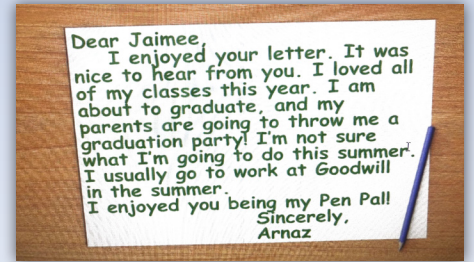 Dear Jaimee,
I enjoyed your letter. It was
nice to hear from you. I loved all
of my classes this year. I am
about to graduate, and my
parents are going to throw me a
graduation party! I'm not sure
what I'm going to do this summer.
I usually go to work at Goodwill
in the summer.
I enjoyed you being my Pen Pal!
Sincerely,
Arnaz